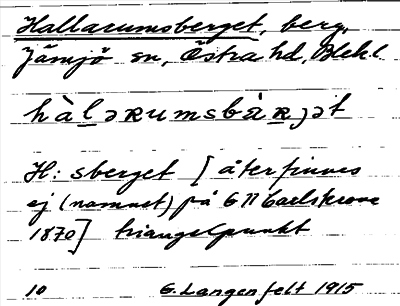 Hallarumsberget, berg,
Jämjö sn, Östra hd, Blek.l
hàləʀumsbàʀjət
H: sberget [återfinnes
ej (namnet) på G Carlskrona
1870] triangelpunkt
10 G. Langenfelt 1915